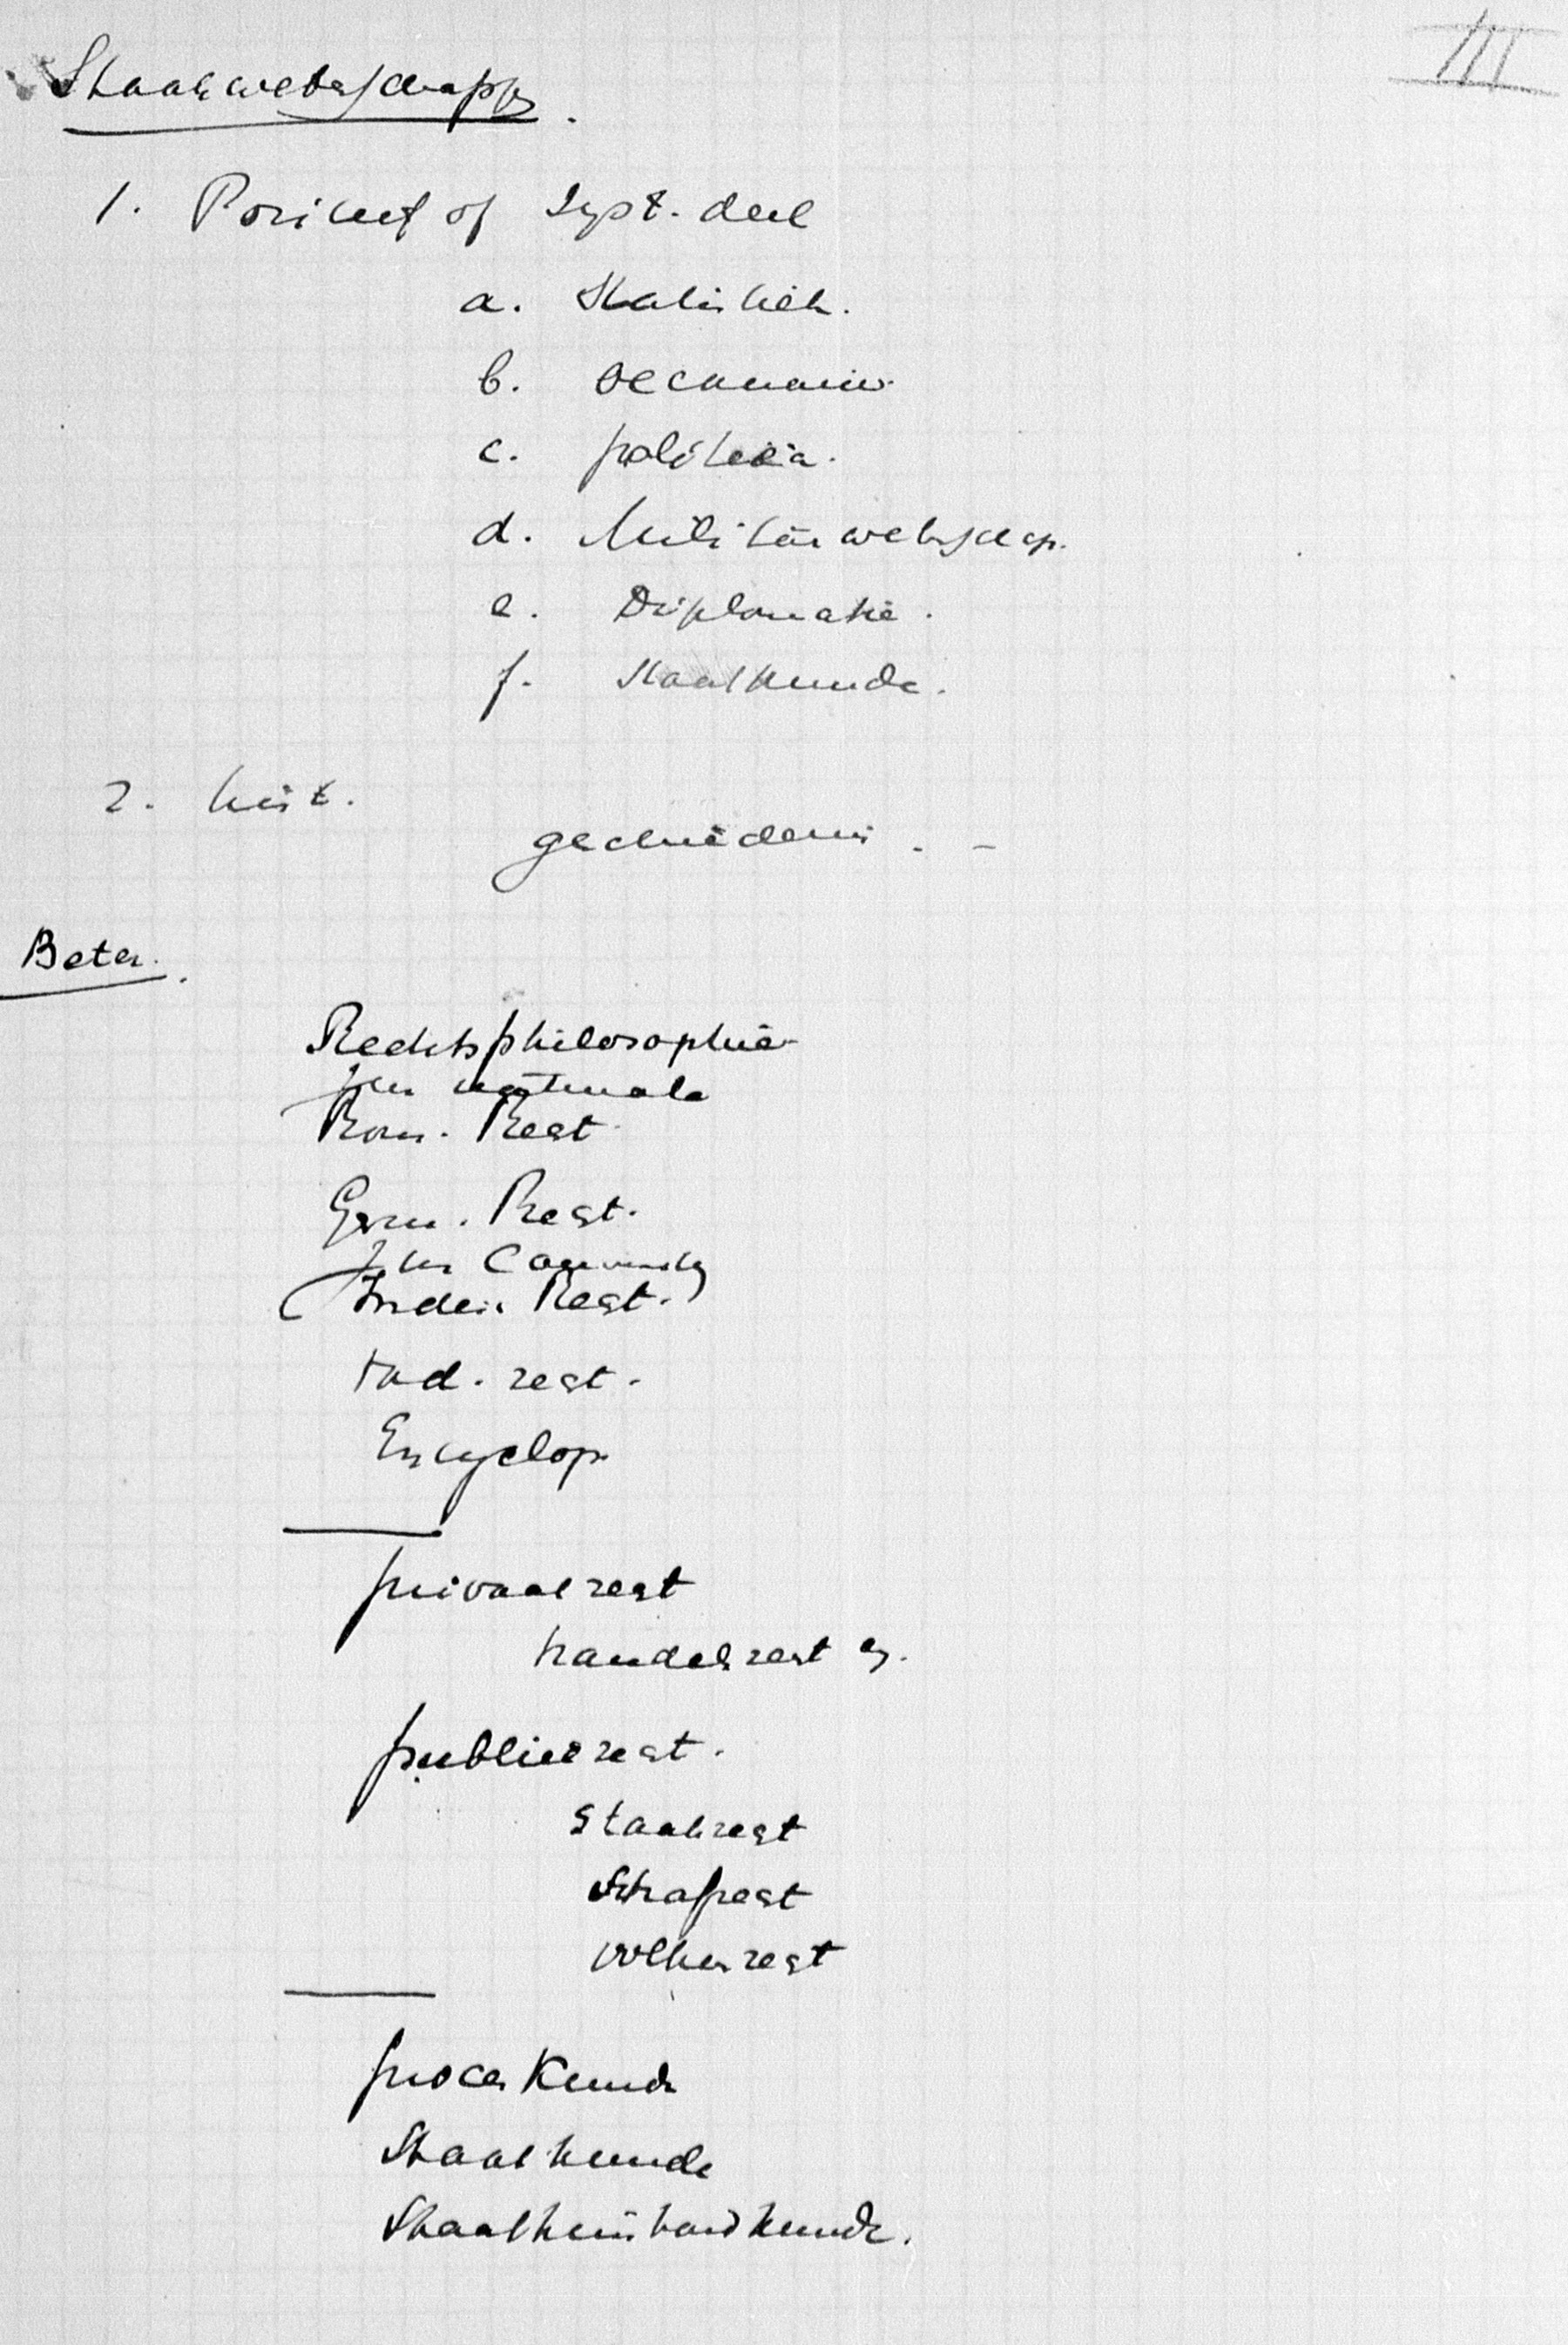 III
Staatswetenschappen.
1. Positief of Syst. deel
a. Statistiek.
b. oeconomie.
c. politeia.
d. Militair wetenschap.
e. Diplomatie.
f. Staatkunde.
2. hist.
geschiedenis. -
Beter.
Rechtsphilosophie
jus naturale
Rom. Regt.
Germ. Regt.
Jus
Regt.
vad. regt.
Encyclop.
privaatregt
handelsregt en.
publiekregt.
Staatsregt
Strafregt
volkenregt
proceskunde
Staatkunde
Staathuishoudkunde.